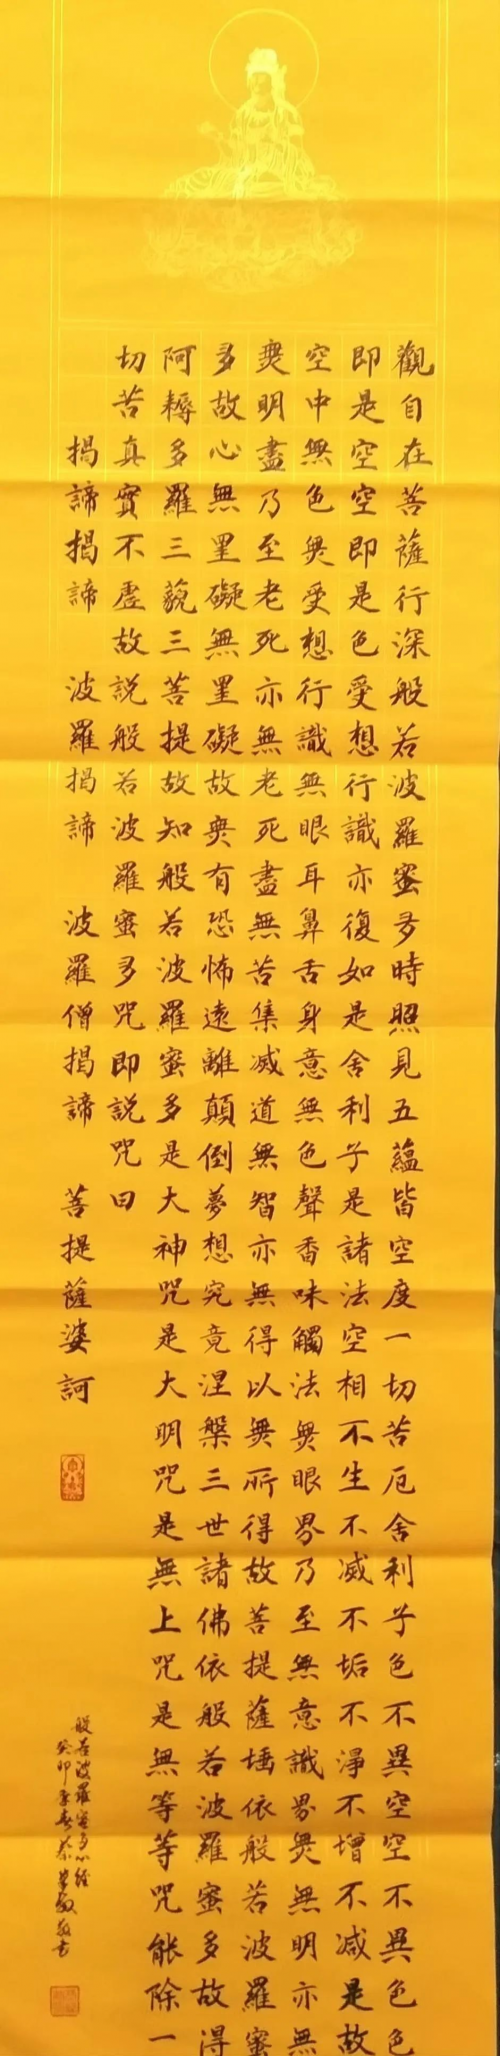 觀自在菩薩行深般若波羅蜜多時照見五蘊皆空度一切苦厄舍利子色不異空空不異色色
即是空空即是色受想行識亦復如是舍利子是諸法空相不生不滅不垢不淨不增不減是故
空中無色無受想行識無眼耳鼻舌身意無色聲香味觸法無眼界乃至無意識界無無明亦無
無明盡乃至老死亦無老死盡無苦集滅道無智亦無得以無所得故菩提薩埵依般若波羅蜜
多故心無罣礙無罣礙故無有恐怖遠離顛倒夢想究竟涅槃三世諸佛依般若波羅蜜多故得
阿耨多羅三藐三菩提故知般若波羅蜜多是大神咒是大明咒是無上咒是無等等咒能除一
切苦真實不虛故說般若波羅蜜多咒即說咒曰
揭諦揭諦 波羅揭諦 波羅僧揭諦 菩提薩婆訶
般若波羅蜜多心經
癸卯 敬書